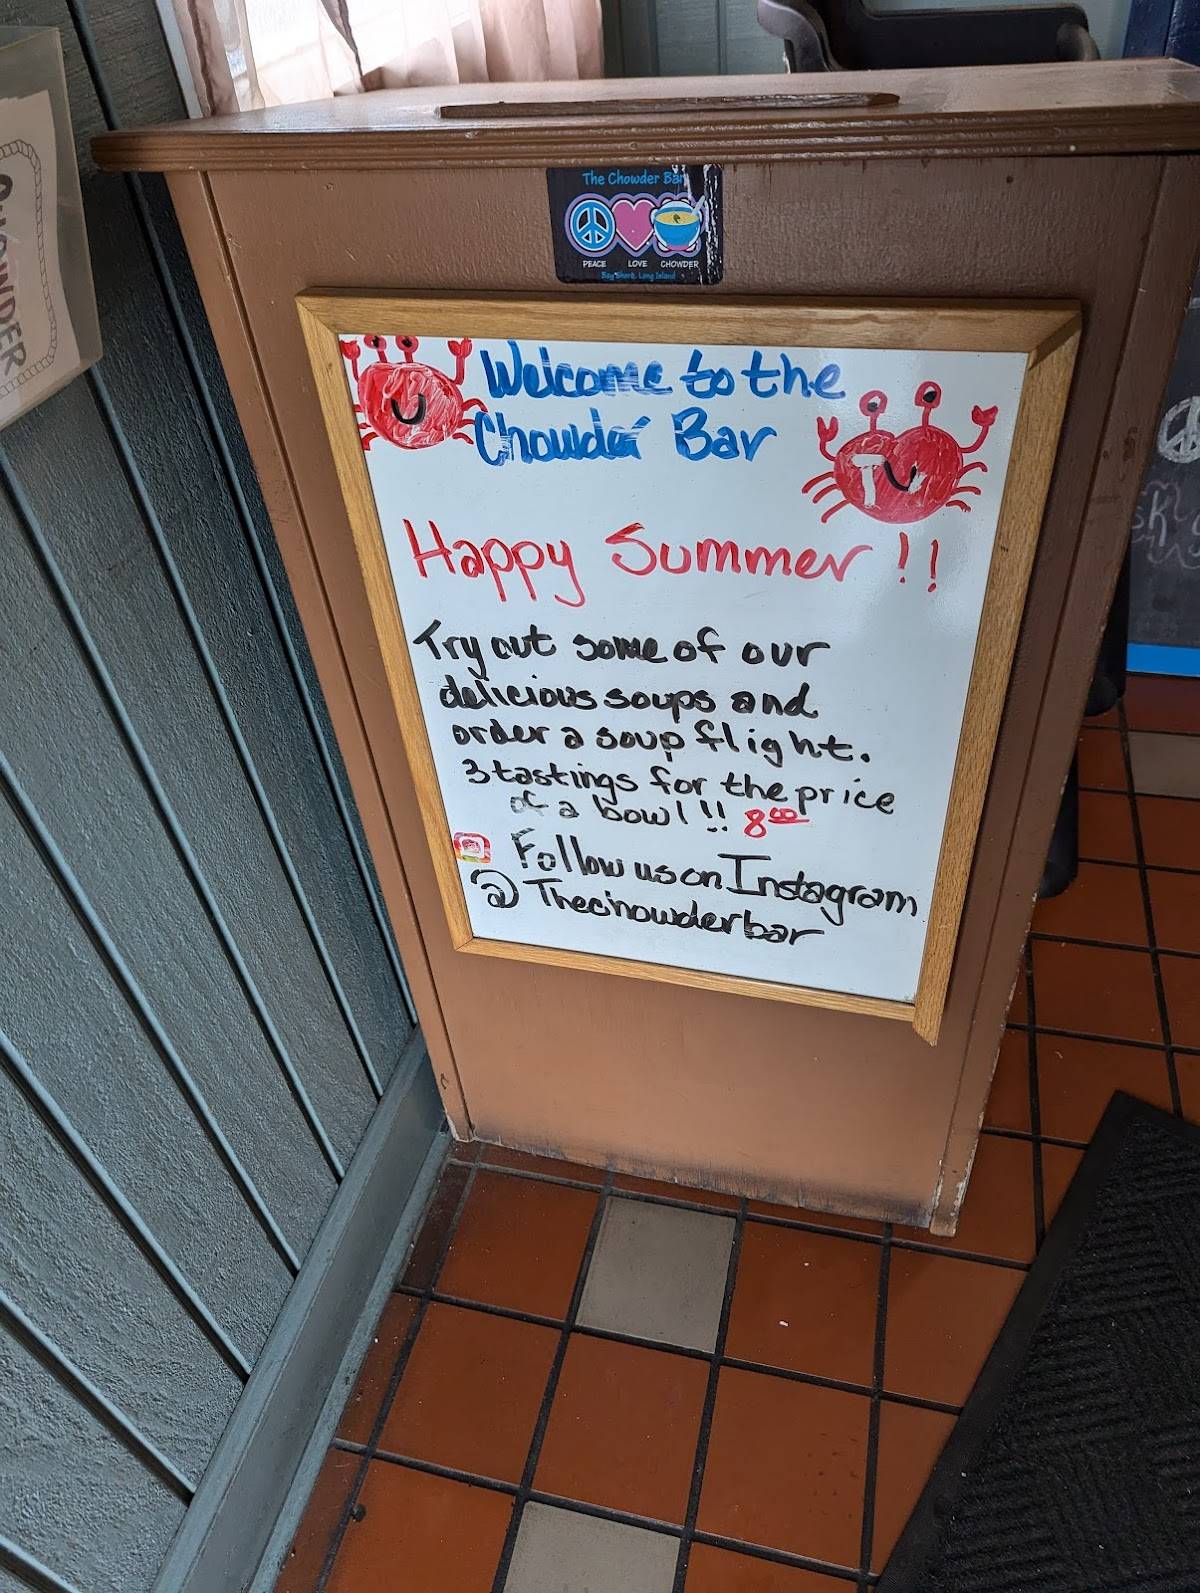 The Chowder Bar
PEACE LOVE CHOWDER
Bay Shore, Long Island
CHOWDER
Welcome to the
Chowder Bar
Happy Summer!!
Try out some of our
delicious soups and
order a soup flight.
3 tastings for the price
of a bowl!! 8.00
Follow us on Instagram
@Thechowderbar